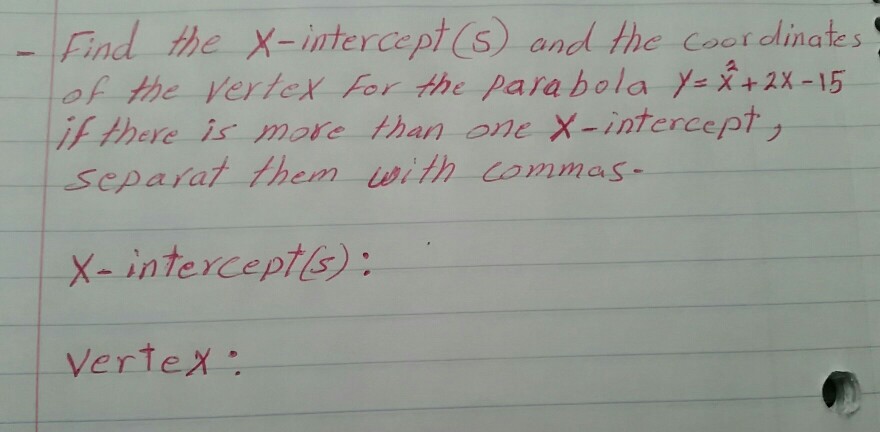 - Find the X-intercept(s) and the coordinates
of the vertex for the parabola y=x²+2x-15
if there is more than one X-intercept,
separat them with commas.
X-intercept(s):
Vertex: